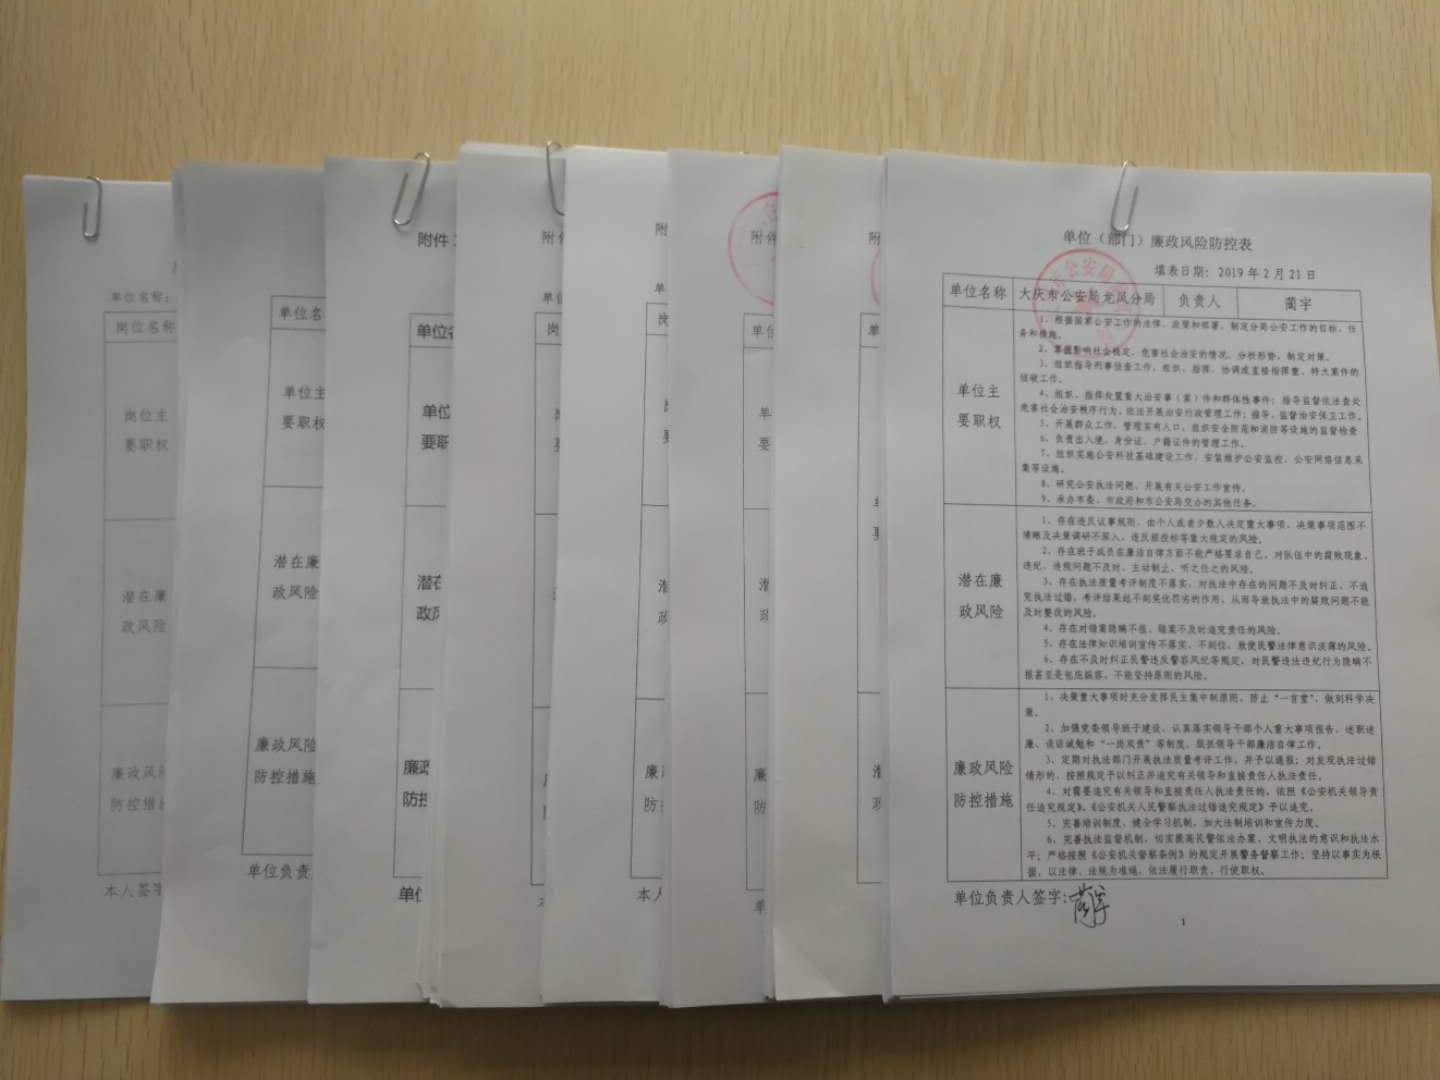 单位（部门）廉政风险防控表
填表日期：2019年2月21日
单位名称 大庆市公安局龙凤分局 负责人 蔺宇
单位主
要职权
1、根据国家公安工作的法律、政策和部署，制定分局公安工作的目标、任
务和措施。
2、掌握影响社会稳定、危害社会治安的情况，分析形势，制定对策。
3、组织指导刑事侦查工作，组织、指挥、协调或直接指挥重、特大案件的
侦破工作。
4、组织、指挥处置重大治安事（案）件和群体性事件；指导监督依法查处
危害社会治安秩序行为，依法开展治安行政管理工作；指导、监督治安保卫工作。
5、开展群众工作，管理实有人口，组织安全防范和消防等设施的监督检查
6、负责出入境、身份证、户籍证件的管理工作。
7、组织实施公安科技基础建设工作，安装维护公安监控、公安网络信息采
集等设施。
8、研究公安执法问题，开展有关公安工作宣传。
9、承办市委、市政府和市公安局交办的其他任务。
潜在廉
政风险
1、存在违反议事规则，由个人或者少数人决定重大事项，决策事项范围不
清晰及决策调研不深入，违反招投标等重大规定的风险。
2、存在班子成员在廉洁自律方面不能严格要求自己，对队伍中的腐败现象、
违纪、违规问题不及时、主动制止，听之任之的风险。
3、存在执法质量考评制度不落实，对执法中存在的问题不及时纠正，不追
究执法过错，考评结果起不到奖优罚劣的作用，从而导致执法中的腐败问题不能
及时整改的风险。
4、存在对错案隐瞒不报，错案不及时追究责任的风险。
5、存在法律知识培训宣传不落实、不到位，致使民警法律意识淡薄的风险。
6、存在不及时纠正民警违反警容风纪等规定，对民警违法违纪行为隐瞒不
报甚至是包庇纵容，不能坚持原则的风险。
廉政风险
防控措施
1、决策重大事项时充分发挥民主集中制原则，防止“一言堂”，做到科学决
策。
2、加强党委领导班子建设，认真落实领导干部个人重大事项报告、述职述
廉、谈话诫勉和“一岗双责”等制度，狠抓领导干部廉洁自律工作。
3、定期对执法部门开展执法质量考评工作，并予以通报；对发现执法过错
情形的，按照规定予以纠正并追究有关领导和直接责任人执法责任。
4、对需要追究有关领导和直接责任人执法责任的，依照《公安机关领导责
任追究规定》、《公安机关人民警察执法过错追究规定》予以追究。
5、完善培训制度，健全学习机制，加大法制培训和宣传力度。
6、完善执法监督机制，切实提高民警依法办案、文明执法的意识和执法水
平；严格按照《公安机关督察条例》的规定开展警务督察工作；坚持以事实为根
据，以法律、法规为准绳，依法履行职责，行使职权。
单位负责人签字：蔺宇
1
单位名称：
岗位名称
岗位主
要职权
潜在廉
政风险
廉政风
防控措施
本人签字
单位名
单位主
要职权
潜在廉
政风险
廉政风险
防控措施
单位负责
附件
单位
单位
要职
廉政
防控
单位
附件
单位
附
本人
附件
单位
附